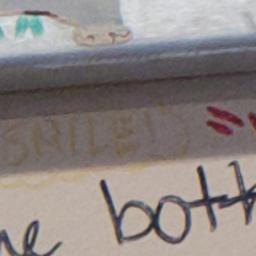 SMILE!)
he bott